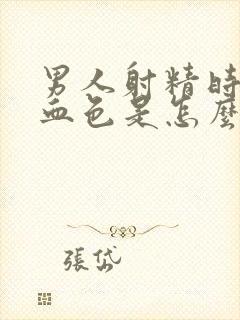 男人射精时
血色是怎麼
張岱